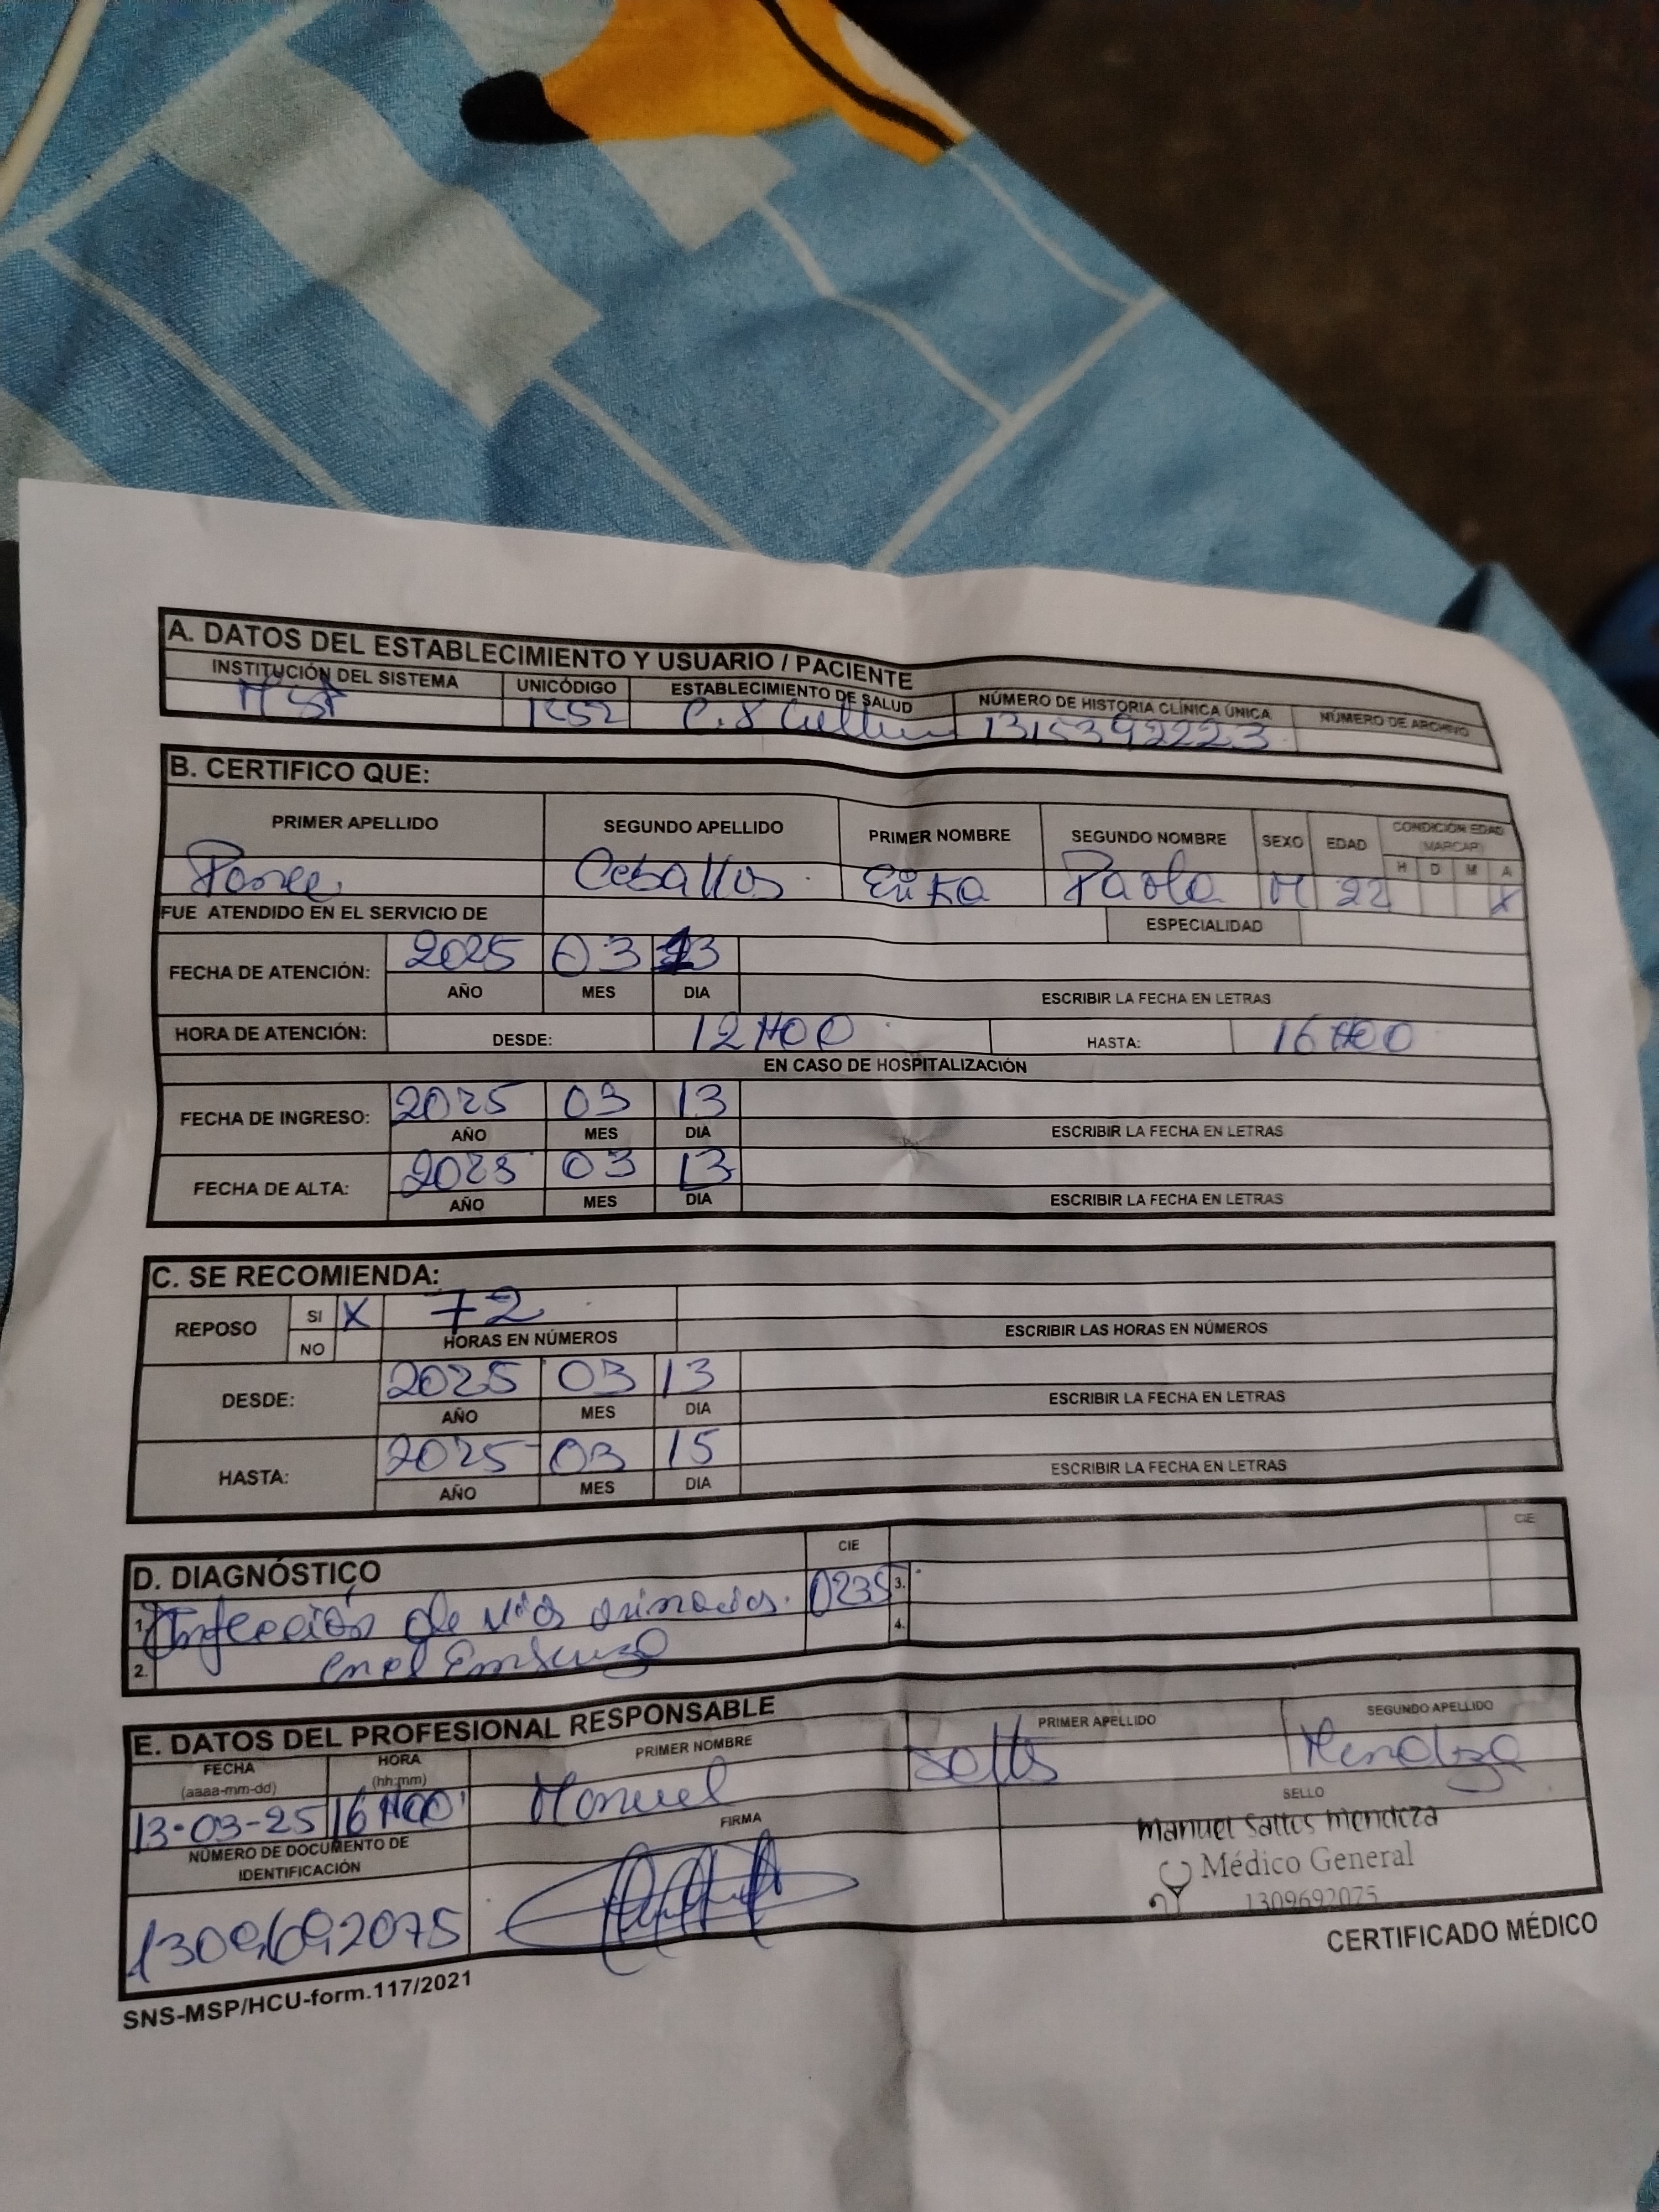 A. DATOS DEL ESTABLECIMIENTO Y USUARIO / PACIENTE
INSTITUCIÓN DEL SISTEMA UNICÓDIGO ESTABLECIMIENTO DE SALUD NÚMERO DE HISTORIA CLÍNICA ÚNICA NÚMERO DE ARCHIVO
C.S 1315392223
B. CERTIFICO QUE:
PRIMER APELLIDO SEGUNDO APELLIDO PRIMER NOMBRE SEGUNDO NOMBRE SEXO EDAD CONDICIÓN EDAD (MARCAR)
H D M A
Ponce Ceballos Erika Paola M 22 X
FUE ATENDIDO EN EL SERVICIO DE ESPECIALIDAD
FECHA DE ATENCIÓN: 2025 03 13
AÑO MES DIA ESCRIBIR LA FECHA EN LETRAS
HORA DE ATENCIÓN: DESDE: 12H00 HASTA: 16H00
EN CASO DE HOSPITALIZACIÓN
FECHA DE INGRESO: 2025 03 13
AÑO MES DIA ESCRIBIR LA FECHA EN LETRAS
FECHA DE ALTA: 2025 03 13
AÑO MES DIA ESCRIBIR LA FECHA EN LETRAS
C. SE RECOMIENDA:
REPOSO SI X 72
NO HORAS EN NÚMEROS ESCRIBIR LAS HORAS EN NÚMEROS
DESDE: 2025 03 13
AÑO MES DIA ESCRIBIR LA FECHA EN LETRAS
HASTA: 2025 03 15
AÑO MES DIA ESCRIBIR LA FECHA EN LETRAS
D. DIAGNÓSTICO CIE CIE
1. Infección de vias urinarias. O235 3.
2. en el Embarazo 4.
E. DATOS DEL PROFESIONAL RESPONSABLE
FECHA (aaaa-mm-dd) HORA (hh:mm) PRIMER NOMBRE PRIMER APELLIDO SEGUNDO APELLIDO
13-03-25 16H00 Manuel Saltos Mendoza
NÚMERO DE DOCUMENTO DE IDENTIFICACIÓN FIRMA SELLO
1309692075
Manuel Saltos Mendoza
Médico General
1309692075
SNS-MSP/HCU-form.117/2021 CERTIFICADO MÉDICO